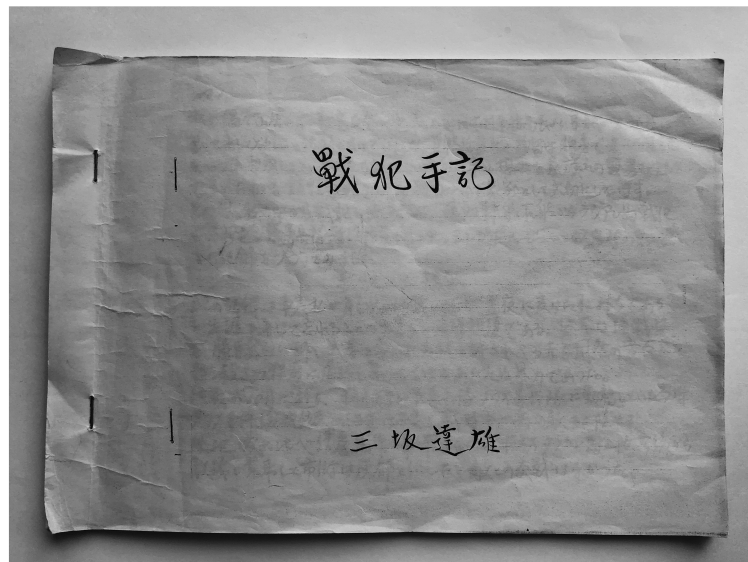 戰犯手記
三坂達雄